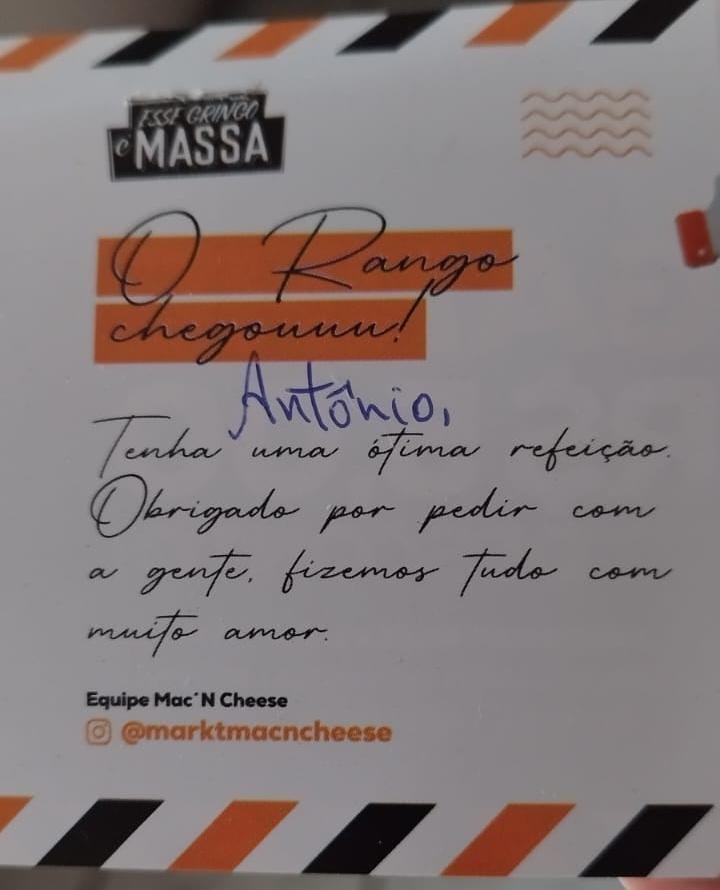 ESSE GRINGO
é MASSA
O Rango
chegouuu!
Antônio,
Tenha uma ótima refeição.
Obrigado por pedir com
a gente, fizemos tudo com
muito amor.
Equipe Mac'N Cheese
@marktmacncheese